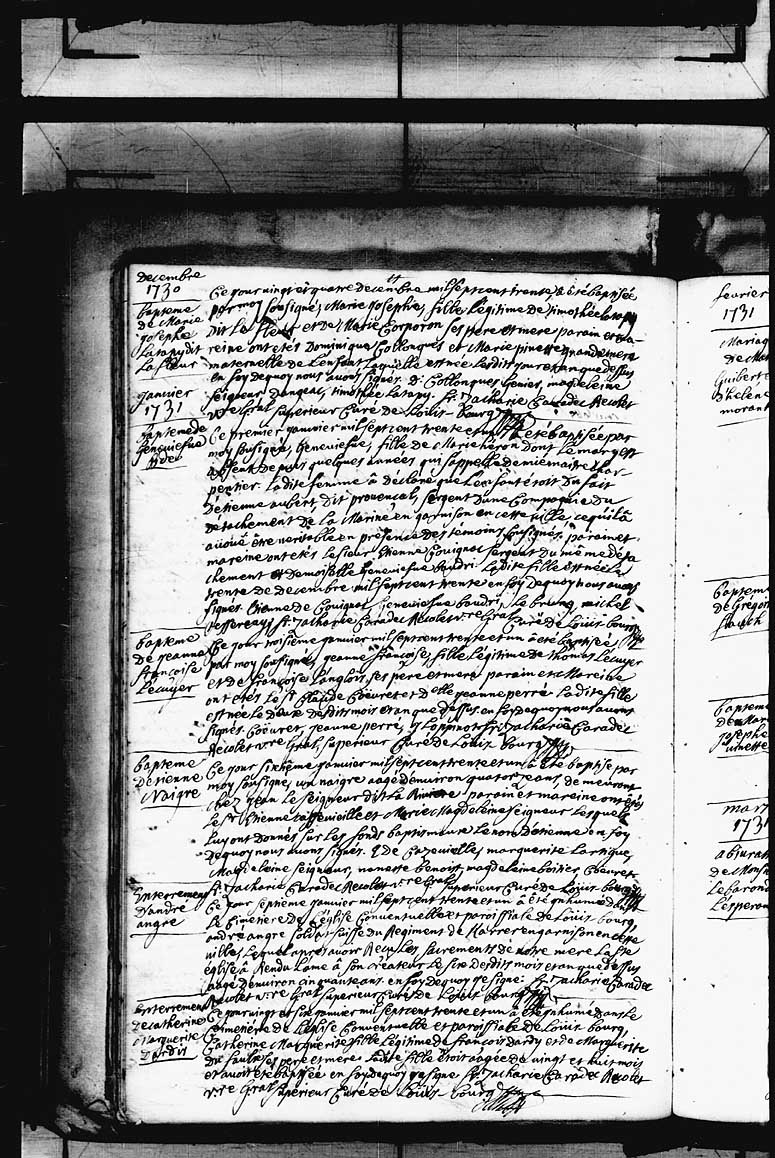 decembre
1730
bapteme
de Marie
josephe
Latapy dit
La fleur
Ce jour vingt et quatre decembre mil sept cent trente, a été baptisée
par moy sousigné, Marie josephe, fille légitime de timothée latapy
dit La fleur et de Marie Corporon ses pere et mere parain et ma-
reine ont etés dominique Collongues et Marie pinet grandemere
maternelle de L'enfant laquelle est née Lesdits jour et an que dessus
en foy dequoy nous avons signés. D. Collongues, magdeleine
Seigneur, timothée Latapy. fr. Zacharie Caradec Recolet
v.re Gnal superieur Curé de Louis bourg
janvier
1731
bapteme de
Geneviefue
Ce premier janvier mil sept cent trente et un a été baptisée par
moy sousigné, Geneviefue, fille de Marie dont le mary est
absent depuis quelques années qui s'appelle maitre char-
pentier. Ladite femme a déclaré que L'enfant étoit du fait
d'étienne aubert, dit provençal, sergent d'une Compagnie du
detachement de La Marine en garnison en cette ville, ce qu'il a
avoué être veritable en présence des témoins sousignés. parain et
mareine ont etés le sieur Etienne Couignac sergent du même déta
chement et demoiselle Geneviefue baudri. Ladite fille est née le
trente de decembre mil sept cent trente en foy dequoy nous avons
signés. Etienne de Couignac, Geneviefue baudri, Le brung, michel
fr. Zacharie Caradec Recolet v.re Gnal Curé de Louis bourg
bapteme
de jeanne
françoise
Lecuyer
Ce jour troisième janvier mil sept cent trente et un a été baptisée
par moy sousigné, jeanne françoise, fille légitime de thomas Lecuyer
et de françoise Langlois, ses pere et mere parain et Mareine
ont etés Le Sr Claude Coeuret et delle jeanne perré. Ladite fille
est née Le deux desdits mois et an que dessus. en foy dequoy nous avons
signés Coeuret, jeanne perré, fr. Zacharie Caradec
Recolet v.re Gnal, superieur Curé de Louis bourg
bapteme
de etienne
Naigre
Ce jour sixième janvier mil sept cent trente et un a été baptisé par
moy sousigné, un naigre aagé d'environ quatorze ans, demeurant
chez jean le seigneur dit La Riviere. parain et mareine ont étés
Le Sr Etienne cassevieille et Marie Magdeleine Seigneur Lesquels
Luy ont donnés sur Les fonds baptismaux Le nom d'étienne en foy
dequoy nous avons signés. E De Cazevielles, marguerite Lartigue,
Magdeleine seigneur, nanette benoist, magdeleine boitier, Coeuret
fr. Zacharie Caradec Recolet v.re Gnal superieur Curé de Louis bourg
Enterrement
d'andre
angre
Ce jour septième janvier mil sept cent trente et un a été inhumé dans
Le Cimetiere de L'église Conventuelle et paroissiale de Louis bourg,
andré angre soldat suisse du Regiment de Karrer en garnison en cette
ville, Lequel après avoir Reçu Les sacrements de notre mere La Ste
église a Rendu L'ame à son créateur Le six desdits mois et an que dessus
aagé d'environ cinquante ans. en foy dequoy je signe. fr. Zacharie Caradec
Recolet v.re Gnal superieur Curé de Louis bourg
Enterrement
de catherine
Marguerite
Dardis
Ce jour vingt et six janvier mil sept cent trente et un a été inhumé dans Le
Cimetiére de L'église Conventuelle et paroissiale de Louis bourg,
Catherine Marguerite fille Légitime de francois dardy et de Marguerite
du faut ses pere et mere. Ladite fille étoit aagée de vingt et huit mois
et avoit été baptisée en foy dequoy je signe fr. Zacharie Caradec Recolet
v.re Gnal superieur Curé de Louis bourg
fevrier
1731
Mariage
de
Guibert
d'helene
morant
baptem
De Grégoi
baptem
de Mari
josephe
mars
1731
abjurati
de Mons
Le baron
L'esperan